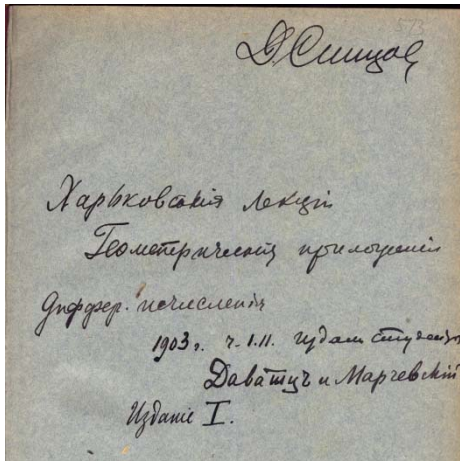 573
Д Синцов
Харьковскія лекціи
Геометрическія приложенія
Диффер. исчисленія
1903 г. ч. I.II. издали студенты
Даватцъ и Марчевскій
Изданіе I.